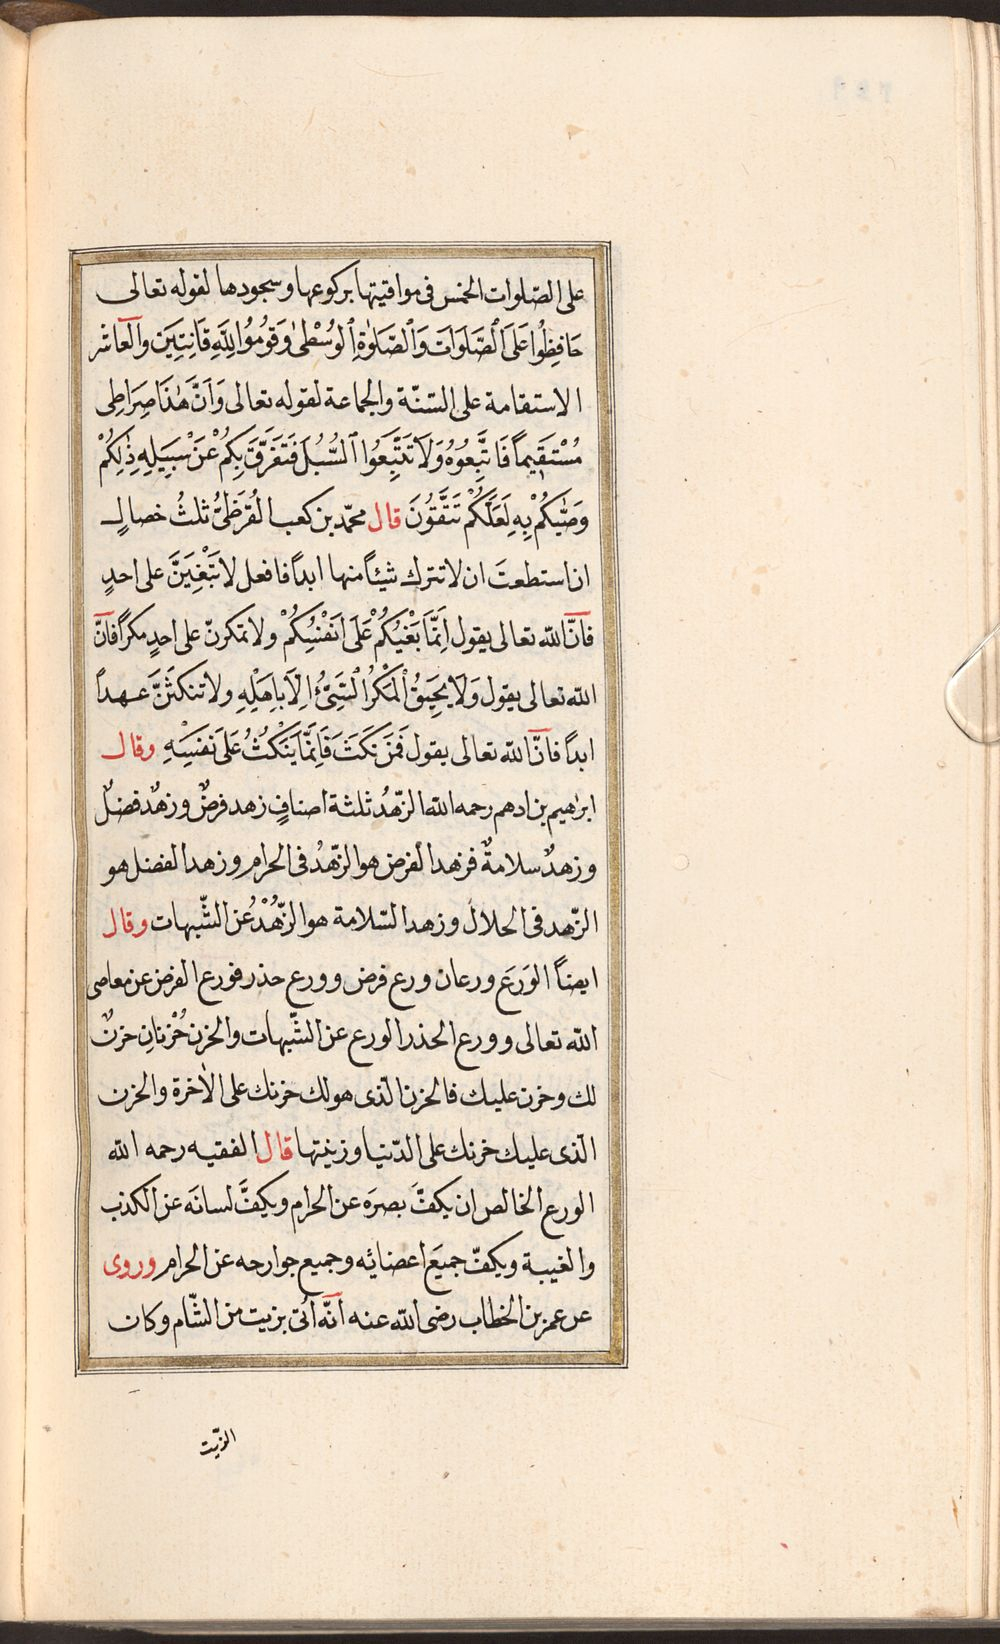 على الصّلوات الخمس فى مواقيتها بركوعها وسجودها لقوله تعالى
حَافِظُوا عَلَى ٱلصَّلَوَاتِ وَٱلصَّلٰوةِ ٱلْوُسْطٰى وَقُومُوا لِلّٰهِ قَانِتِينَ والعاشر
الاستقامة على السّنّة والجماعة لقوله تعالى وَاَنَّ هٰذَا صِرَاطِى
مُسْتَقِيماً فَاتَّبِعُوهُ وَلَا تَتَّبِعُوا ٱلسُّبُلَ فَتَفَرَّقَ بِكُمْ عَنْ سَبِيلِهِ ذٰلِكُمْ
وَصّٰيكُمْ بِهِ لَعَلَّكُمْ تَتَّقُونَ قال محمّد بن كعب القُرَظىُّ ثلثُ خصالٍ
ان استطعتَ ان لا تترك شيئاً منها ابداً فافعل لا تَبْغِيَنَّ على احدٍ
فانّ الله تعالى يقول اِنَّمَا بَغْيُكُمْ عَلَى اَنْفُسِكُمْ ولا تمكرنّ على احدٍ مكراً فانّ
الله تعالى يقول وَلَا يَحِيقُ الْمَكْرُ السَّيِّئُ اِلَّا بِاَهْلِهِ ولا تنكثنَّ عهداً
ابداً فانّ الله تعالى يقول فَمَنْ نَكَثَ فَاِنَّمَا يَنْكُثُ عَلَى نَفْسِهِ وقال
ابرٰهيم بن ادهم رحمه الله الزّهدُ ثلثة اصنافٍ زهد فرضٌ وزهدٌ فضلٌ
وزهدٌ سلامةٌ فزهد الفرض هو الزّهدُ فى الحرام وزهد الفضل هو
الزّهد فى الحلال وزهد السّلامة هو الزّهْدُ عن الشّبهات وقال
ايضاً الوَرَع ورعان ورع فرض وورع حذر فورع الفرض عن معاصى
الله تعالى وورع الحذر الورع عن الشّبهات والحزن حُزْنانِ حزنٌ
لك وحزن عليك فالحزن الّذى هو لك حزنك على الاٰخرة والحزن
الّذى عليك حزنك على الدّنيا وزينتها قال الفقيه رحمه الله
الورع الخالص ان يكفّ بصرَه عن الحرام ويكفَّ لسانَه عن الكذب
والغيبة ويكفّ جميعَ اعضائه وجميع جوارحه عن الحرام وروى
عن عمر بن الخطاب رضى الله عنه انّه اُتى بزيت من الشّام وكان
الزّيت